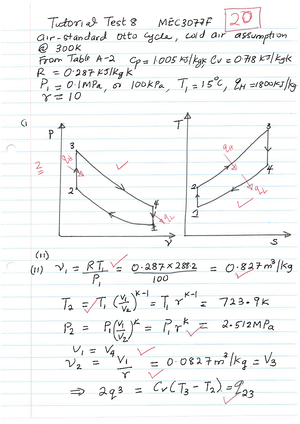 Tutorial Test 8 MEC3077F 20
air-standard Otto cycle, cold air assumption
@ 300K
From Table A-2 Cp = 1.005 kJ/kgK Cv = 0.718 kJ/kgK
R = 0.287 kJ/kg K
P1 = 0.1MPa, or 100kPa, T1 = 15°C, qH = 1800kJ/kg
r = 10
(i)
P
T
3
3
qH
2
qH
4
2
4
qL
2
qL
1
1
v
s
(ii)
(ii) v1 = RT1/P1 = 0.287 × 288.2/100 = 0.827 m³/kg
T2 = T1 (v1/v2)^k-1 = T1 r^k-1 = 723.9K
P2 = P1 (v1/v2)^k = P1 r^k = 2.512MPa
v1 = v4
v2 = v1/r = 0.0827 m³/kg = v3
⇒ 2q3 = Cv (T3 - T2) = q23